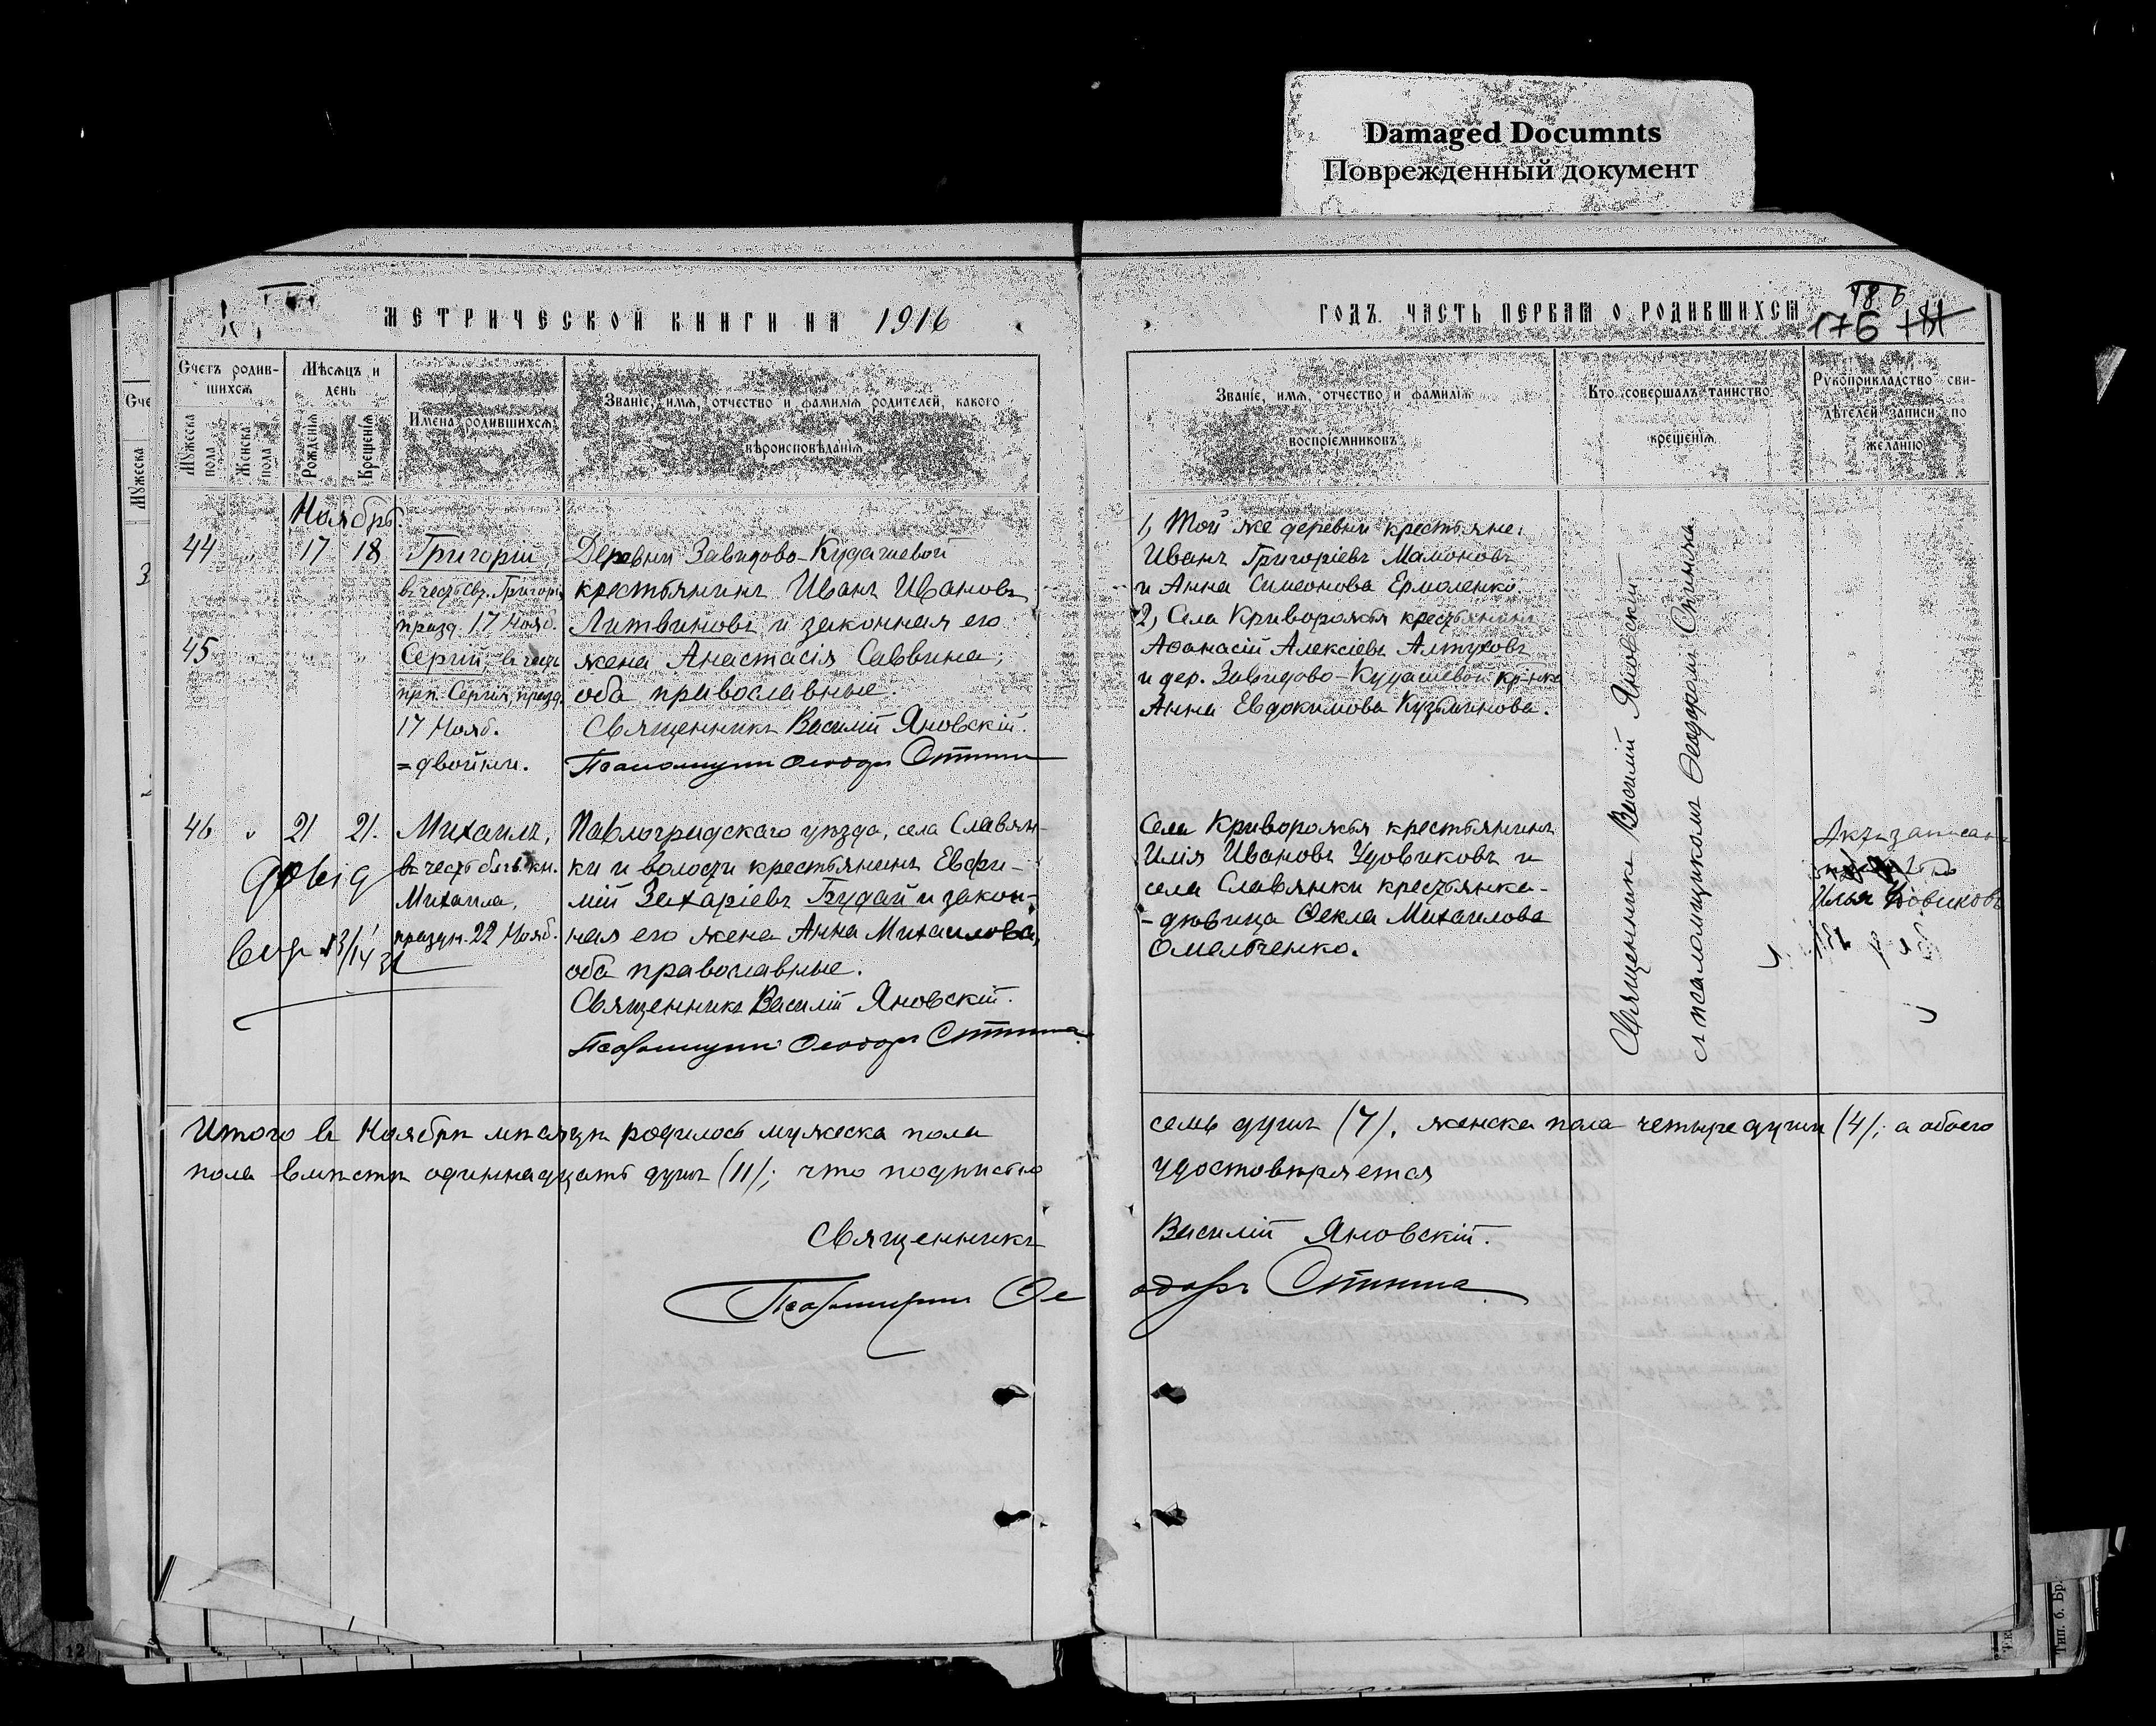 Damaged Documnts
Поврежденный документ
МЕТРИЧЕСКОЙ КНИГИ НА 1916
ГОДЪ. ЧАСТЬ ПЕРВАЯ О РОДИВШИХСЯ
18 б
176
Счетъ родив-
шихся
Мѣсяцъ и
день
Мужеска
пола
Женска
пола
Рожденія
Крещенія
Имена родившихся
Званіе, имя, отчество и фамилія родителей, какого
вѣроисповѣданія
Званіе, имя, отчество и фамилія
воспріемниковъ
Кто совершалъ таинство
крещенія
Рукоприкладство сви-
дѣтелей записи по
желанію
Ноябрь.
44 " 17 18
Григорій,
въ честь Св. Григорія
празд. 17 Нояб.
45 " " "
Сергій, въ честь
прп. Сергія, празд.
17 Нояб.
= двойни.
Деревни Завидово-Кудашевой
крестьянинъ Иванъ Ивановъ
Литвиновъ и законная его
жена Анастасія Саввина,
оба православные.
Священникъ Василій Яновскій.
Псаломщикъ Ѳеодоръ Спинна
1, Той же деревни крестьяне:
Иванъ Григоріевъ Мамоновъ
и Анна Симеонова Ермоленко
2, Села Криворожья крестьянинъ
Аѳанасій Алексіевъ Алтуховъ
и дер. Завидово-Кудашевой кр-нка
Анна Евдокимова Кузьминова.
Священникъ Василій Яновскій
съ псаломщикомъ Ѳеодоромъ Спинна.
46 " 21 21.
Михаилъ,
въ честь благ. кн.
Михаила,
праздн. 22 Нояб.
Павлоградскаго уѣзда, села Славян-
ки и волости крестьянинъ Евфи-
мій Захаріевъ Будай и закон-
ная его жена Анна Михаилова,
оба православные.
Священникъ Василій Яновскій.
Псаломщикъ Ѳеодоръ Спинна
Села Криворожья крестьянинъ
Илія Ивановъ Удовиковъ и
села Славянки крестьянка-
-дѣвица Ѳекла Михаилова
Омельченко.
Актъ записанъ
Илья
довід
вид 13/IV
Итого въ Ноябрѣ мѣсяцѣ родилось мужеска пола
семь душъ (7), женска пола четыре души (4); а обоего
пола вмѣстѣ одиннадцать душъ (11); что подписью
удостовѣряется
Священникъ Василій Яновскій.
Псаломщикъ Ѳеодоръ Спинна